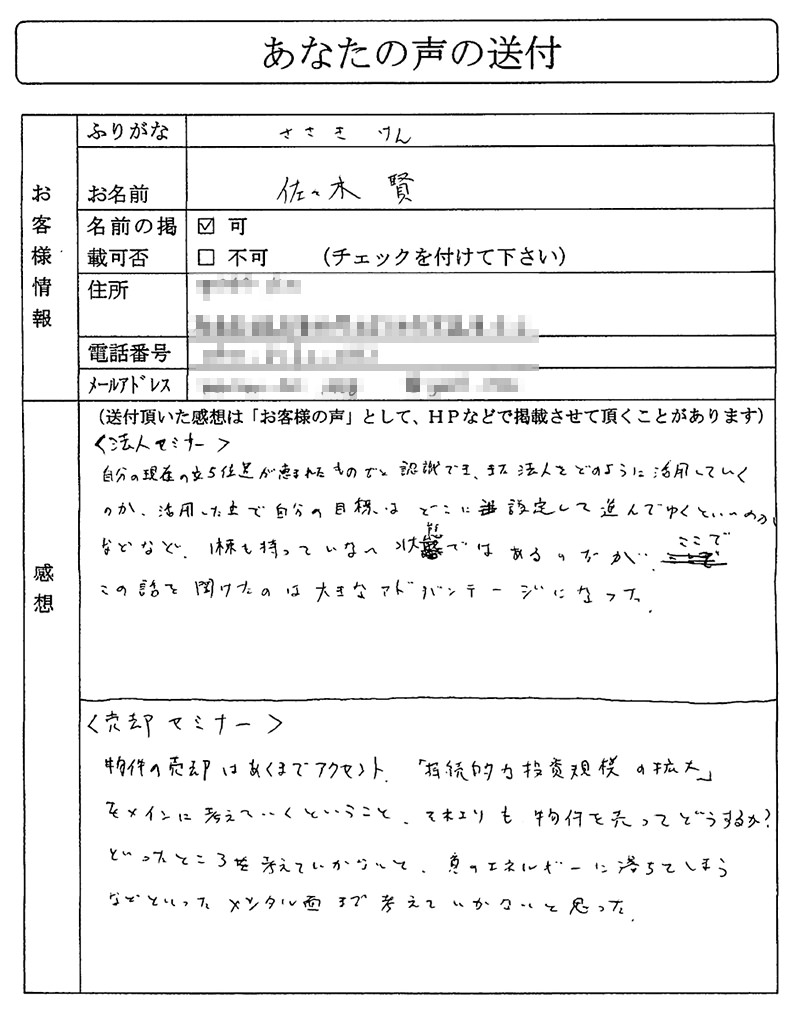 あなたの声の送付
お客様情報
ふりがな ささき けん
お名前 佐々木 賢
名前の掲載可否 ☑ 可
□ 不可 （チェックを付けて下さい）
住所
電話番号
メールアドレス
感想
（送付頂いた感想は「お客様の声」として、HPなどで掲載させて頂くことがあります）
＜法人セミナー＞
自分の現在の立ち位置が恵まれたものでと認識でき、また法人をどのように活用していく
のか、活用した上で自分の目標はどこに設定して進んでゆくといいのか
などなど、1棟も持っていない状態ではあるのだが、ここで
この話を聞けたのは大きなアドバンテージになった。
＜売却セミナー＞
物件の売却はあくまでアクセント、「持続的な投資規模の拡大」
をメインに考えていくということ、それよりも物件を売ってどうするか?
といったところを考えていかないと、負のエネルギーに落ちてしまう
などといったメンタル面まで考えていかないと思った。